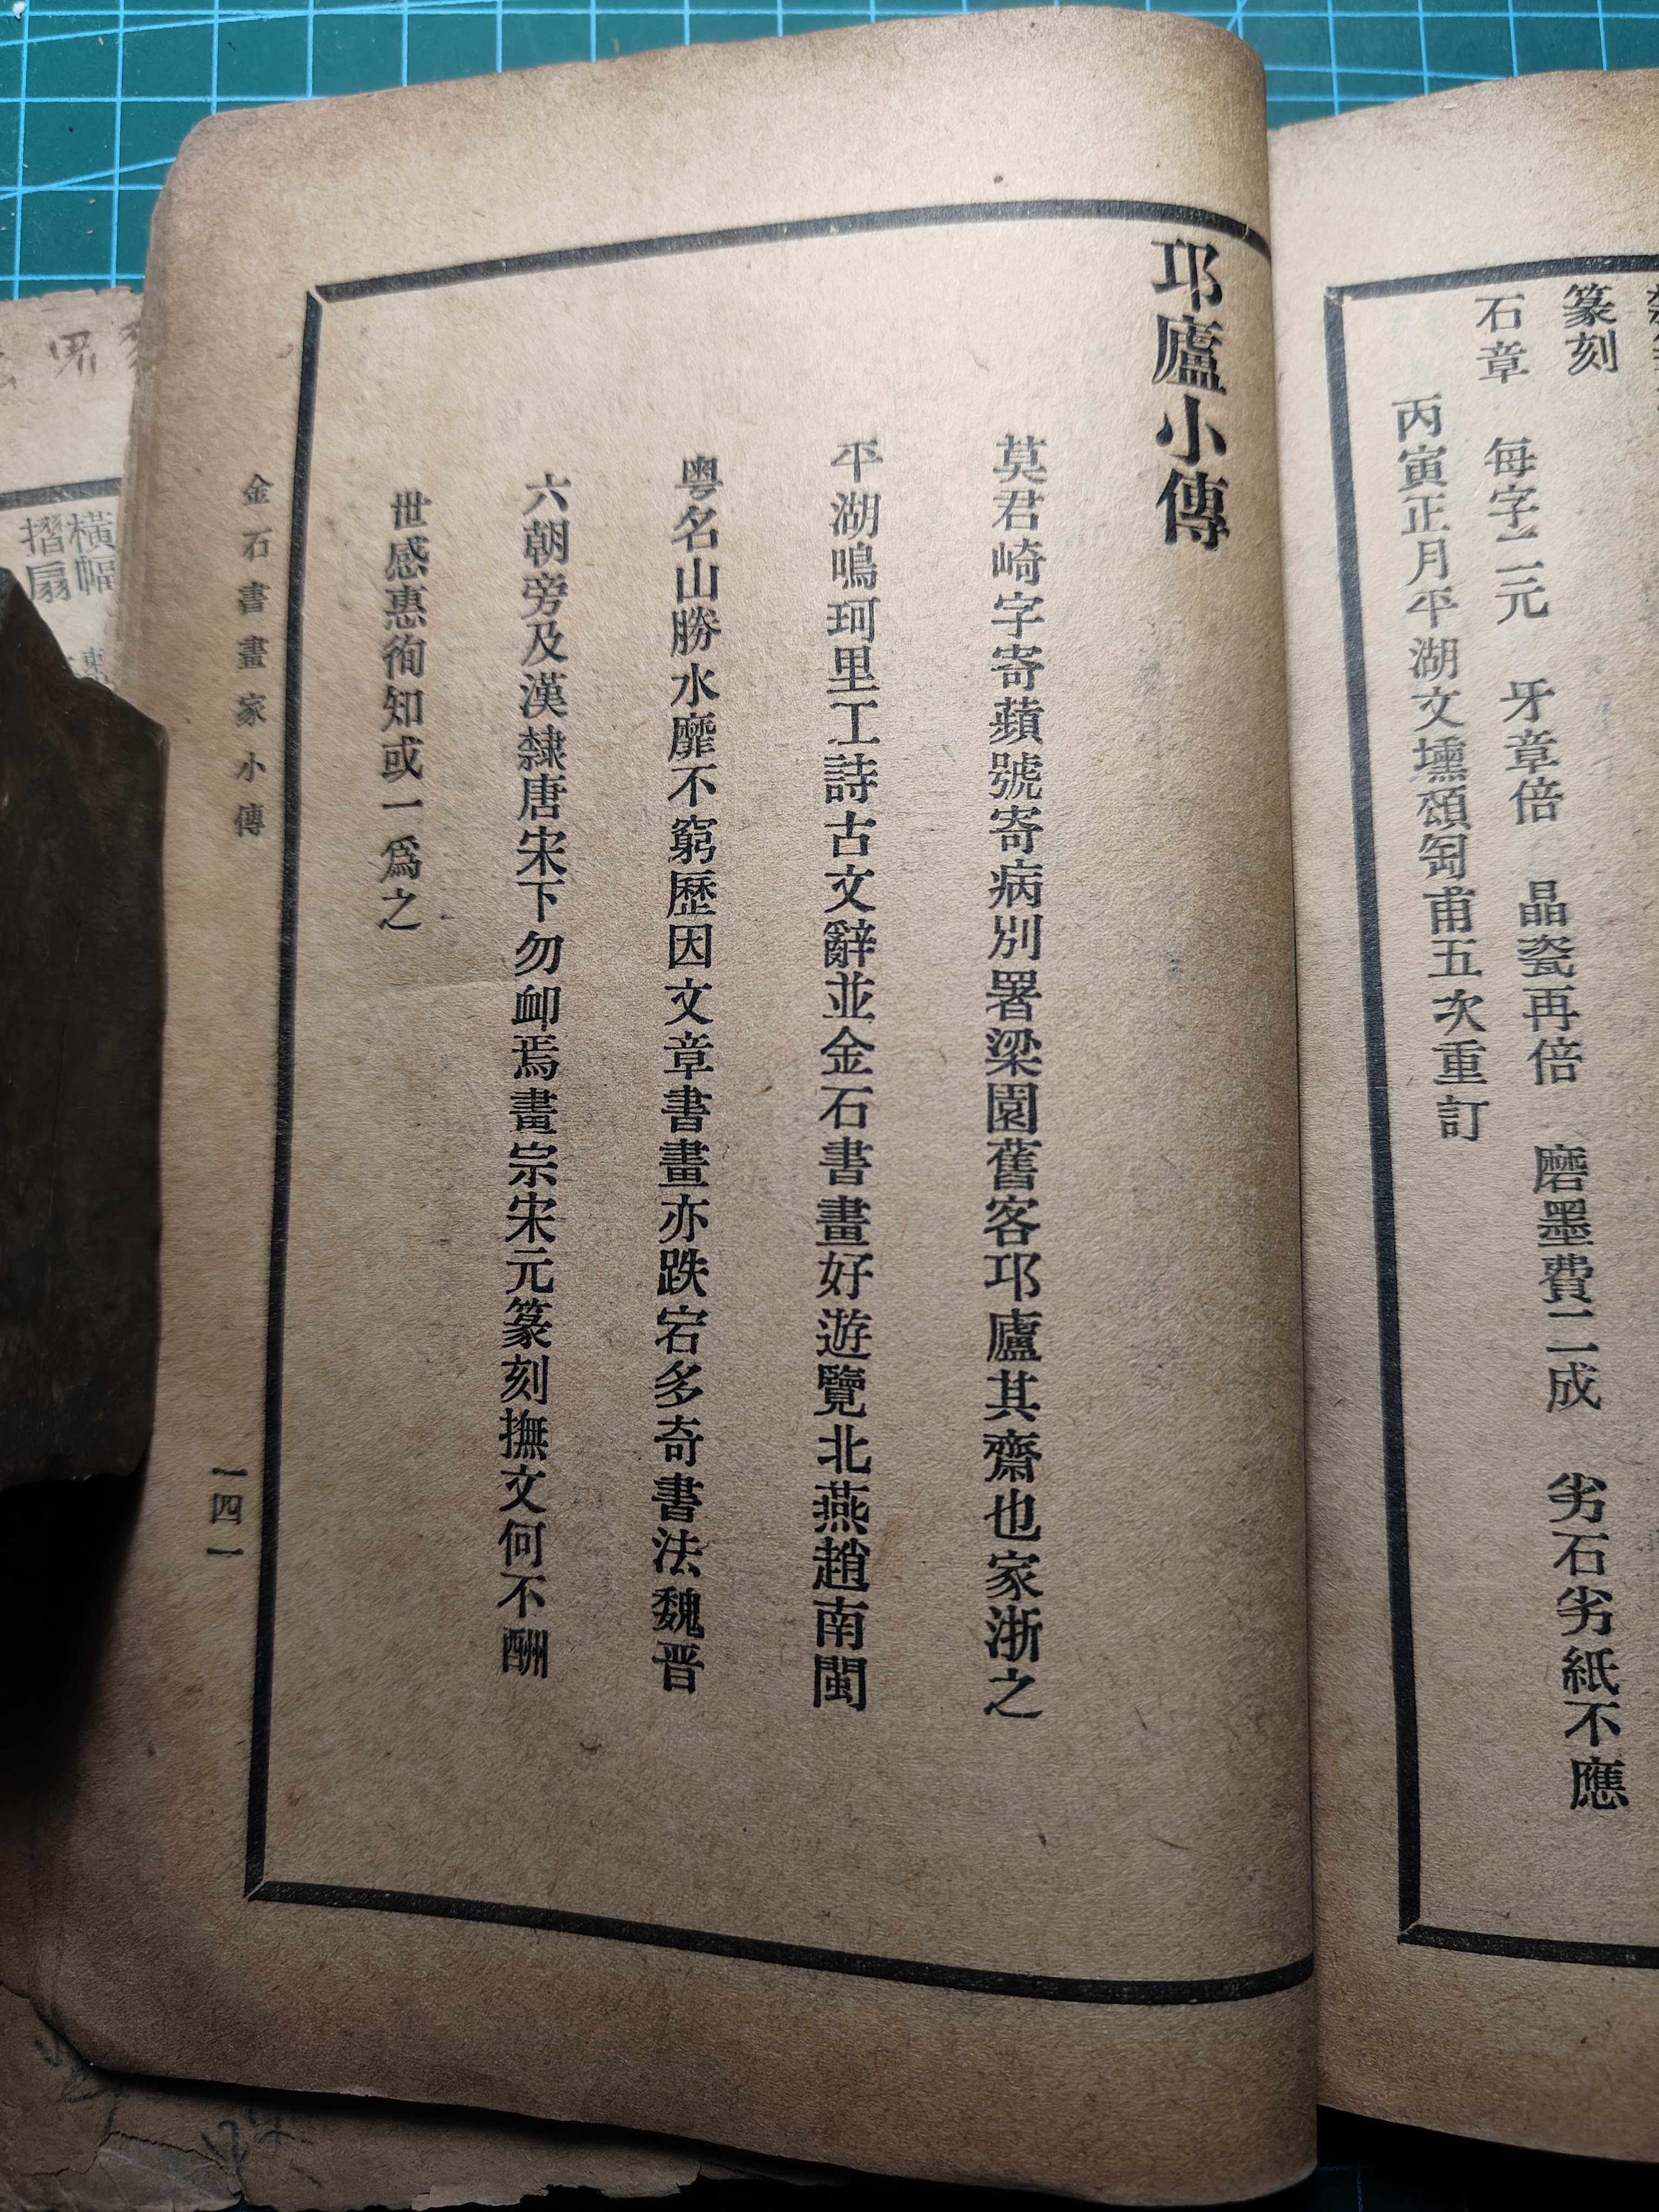 篆刻
石章　每字二元　牙章倍　晶瓷再倍　磨墨費二成　劣石劣紙不應
丙寅正月平湖文壖頌匋甫五次重訂
邛廬小傳
莫君崎字寄蘋號寄病別署梁園舊客邛廬其齋也家浙之
平湖鳴珂里工詩古文辭並金石書畫好遊覽北燕趙南閩
粵名山勝水靡不窮歷因文章書畫亦跌宕多奇書法魏晉
六朝旁及漢隸唐宋下勿卹焉畫宗宋元篆刻撫文何不酬
世感惠徇知或一爲之
金石書畫家小傳
一四一
橫幅
摺扇